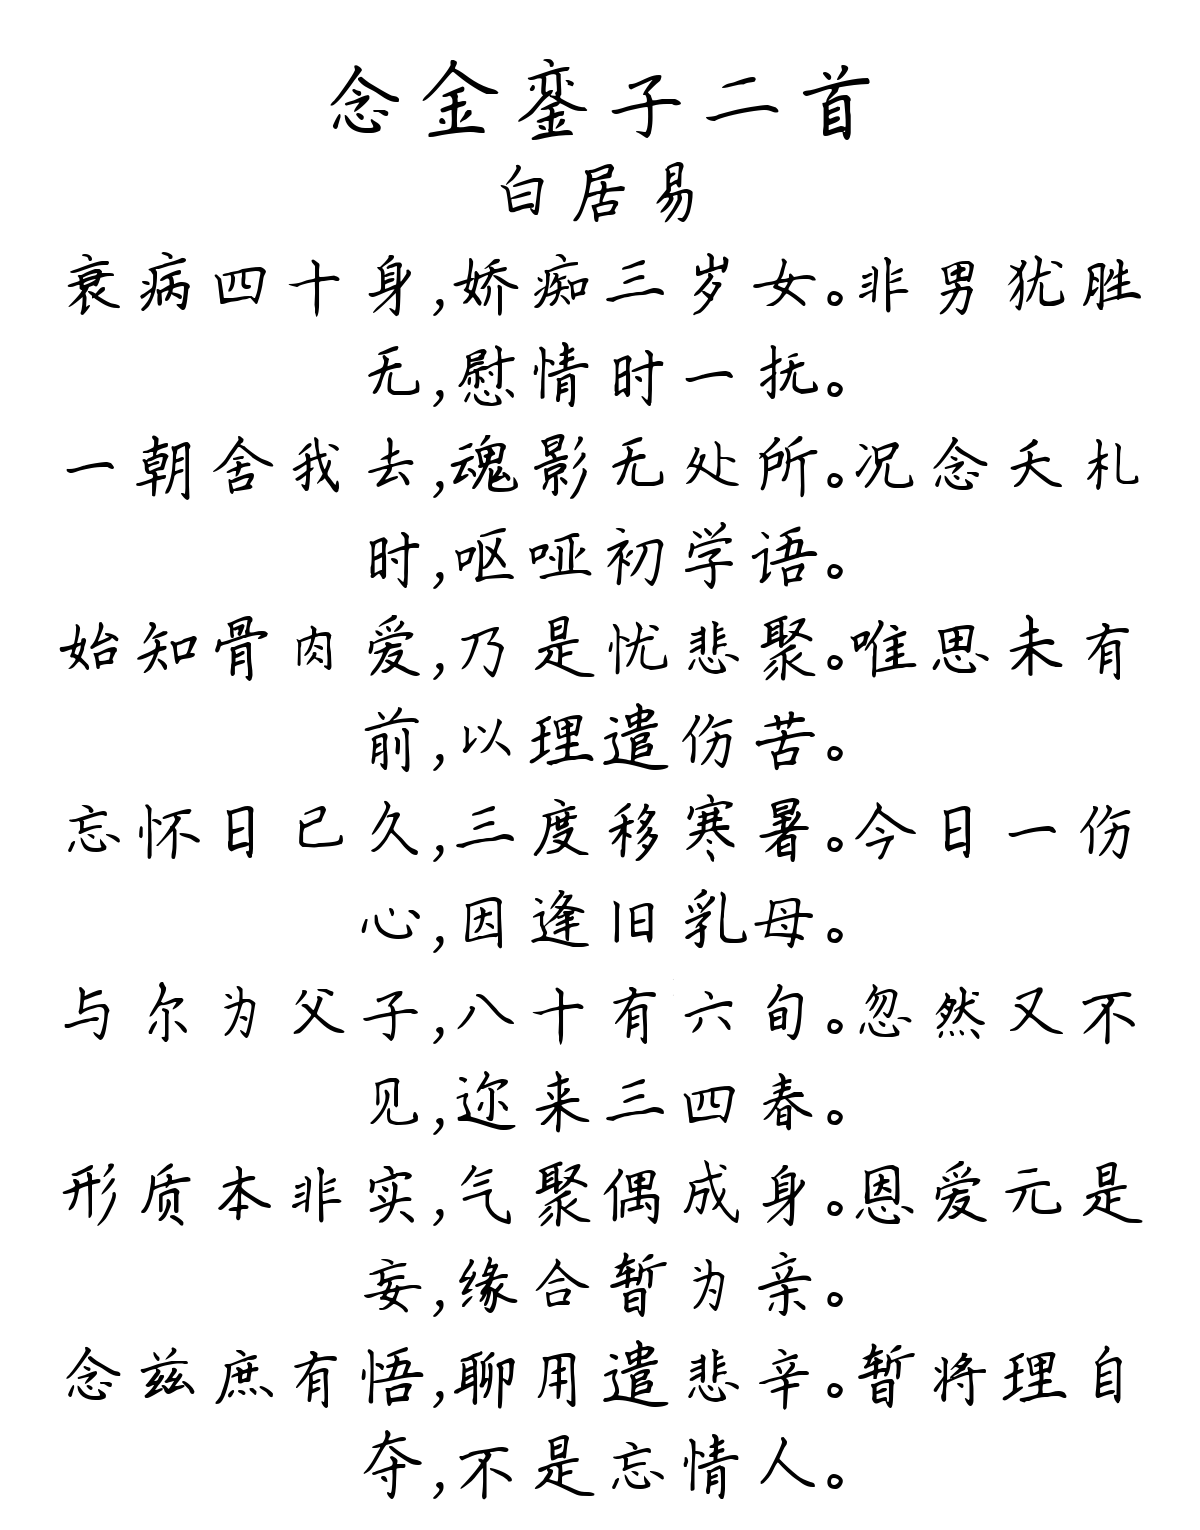 念金銮子二首
白居易
衰病四十身,娇痴三岁女。非男犹胜
无,慰情时一抚。
一朝舍我去,魂影无处所。况念夭札
时,呕哑初学语。
始知骨肉爱,乃是忧悲聚。唯思未有
前,以理遣伤苦。
忘怀日已久,三度移寒暑。今日一伤
心,因逢旧乳母。
与尔为父子,八十有六旬。忽然又不
见,迩来三四春。
形质本非实,气聚偶成身。恩爱元是
妄,缘合暂为亲。
念兹庶有悟,聊用遣悲辛。暂将理自
夺,不是忘情人。